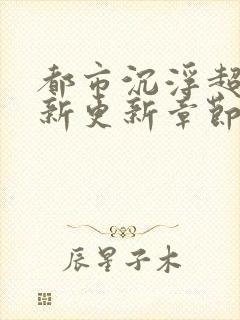 都市沉浮超
新更新章節
辰星子木